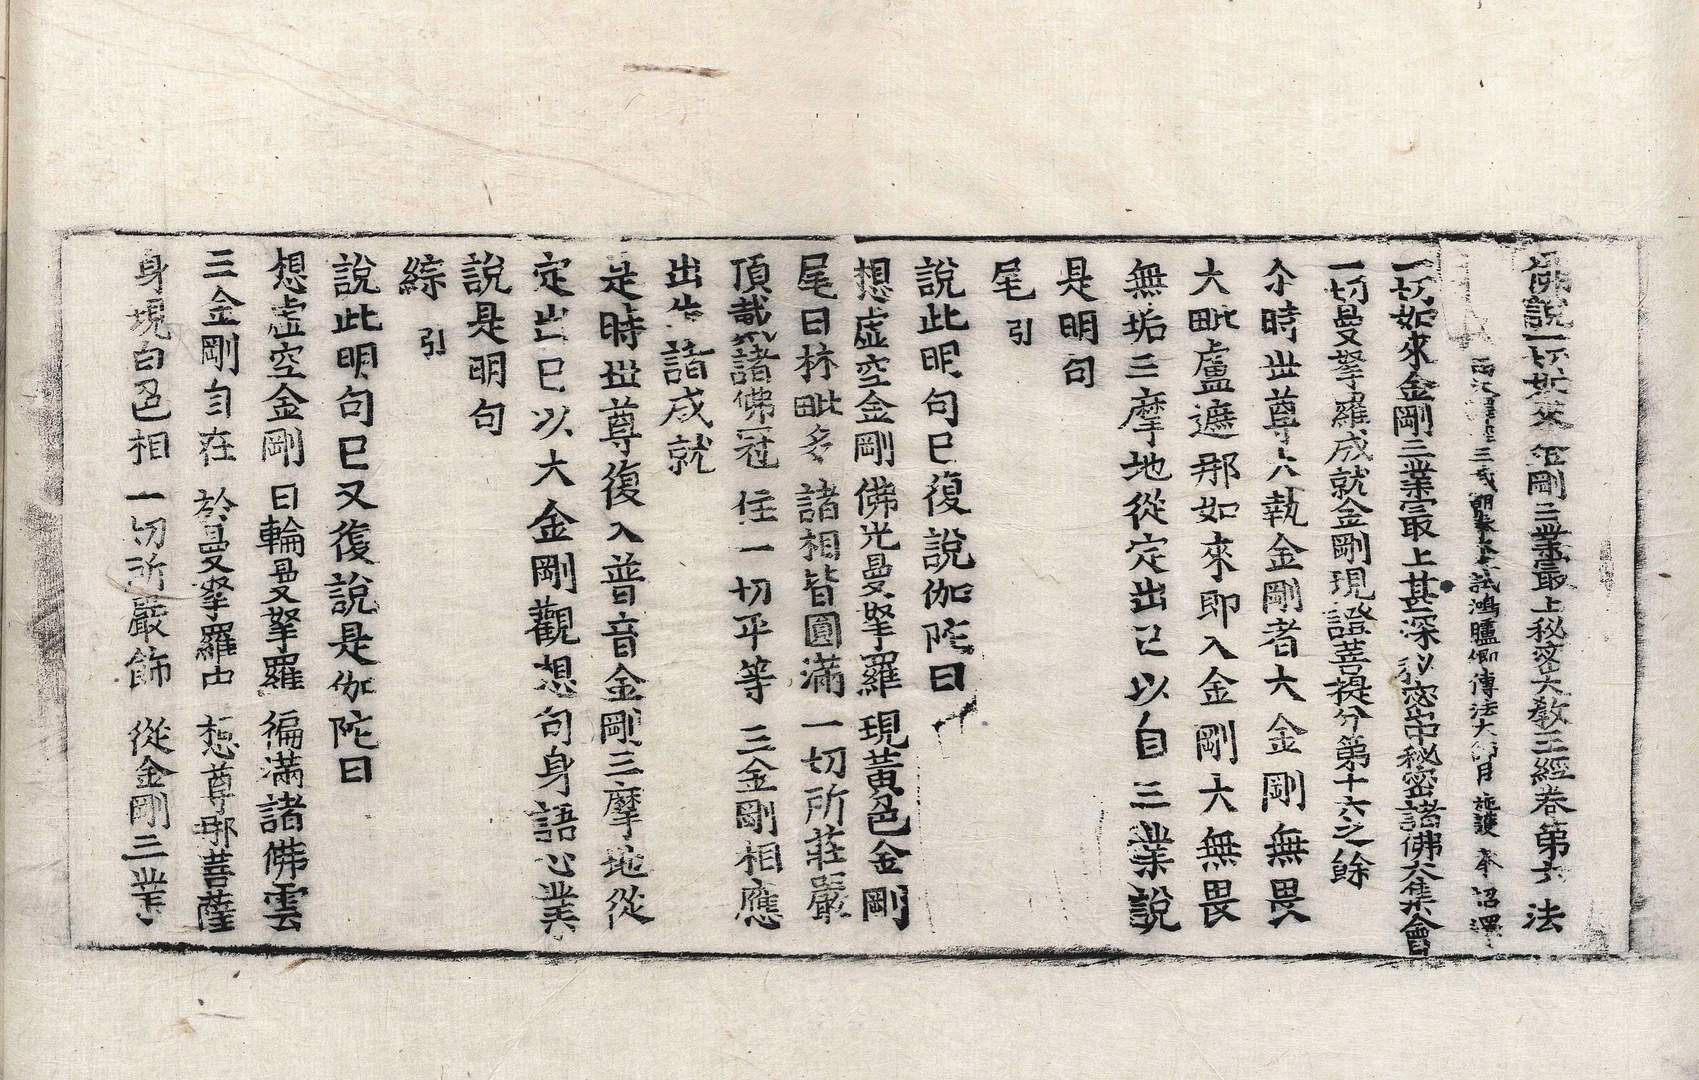 佛說一切如來金剛三業最上秘密大教王經卷第六 法
西天譯經三藏朝奉大夫試鴻臚卿傳法大師臣施護奉詔譯
一切如來金剛三業最上甚深秘密中秘密諸佛大集會
一切曼拏羅成就金剛現證菩提分第十六之餘
尒時世尊大執金剛者大金剛無畏
大毗盧遮那如來即入金剛大無畏
無垢三摩地從定出已以自三業說
是明句
尾 引
說此明句已復說伽陀曰
想虛空金剛 佛光曼拏羅 現黃色金剛
尾曰杯毗多 諸相皆圓滿 一切所莊嚴
頂戴諸佛冠 住一切平等 三金剛相應
出生諸成就
是時世尊復入普音金剛三摩地從
定出已以大金剛觀想句身語心業
說是明句
綜 引
說此明句已又復說是伽陀曰
想虛空金剛 日輪曼拏羅 徧滿諸佛雲
三金剛自在 於曼拏羅中 想尊那菩薩
身現白色相 一切所嚴飾 從金剛三業